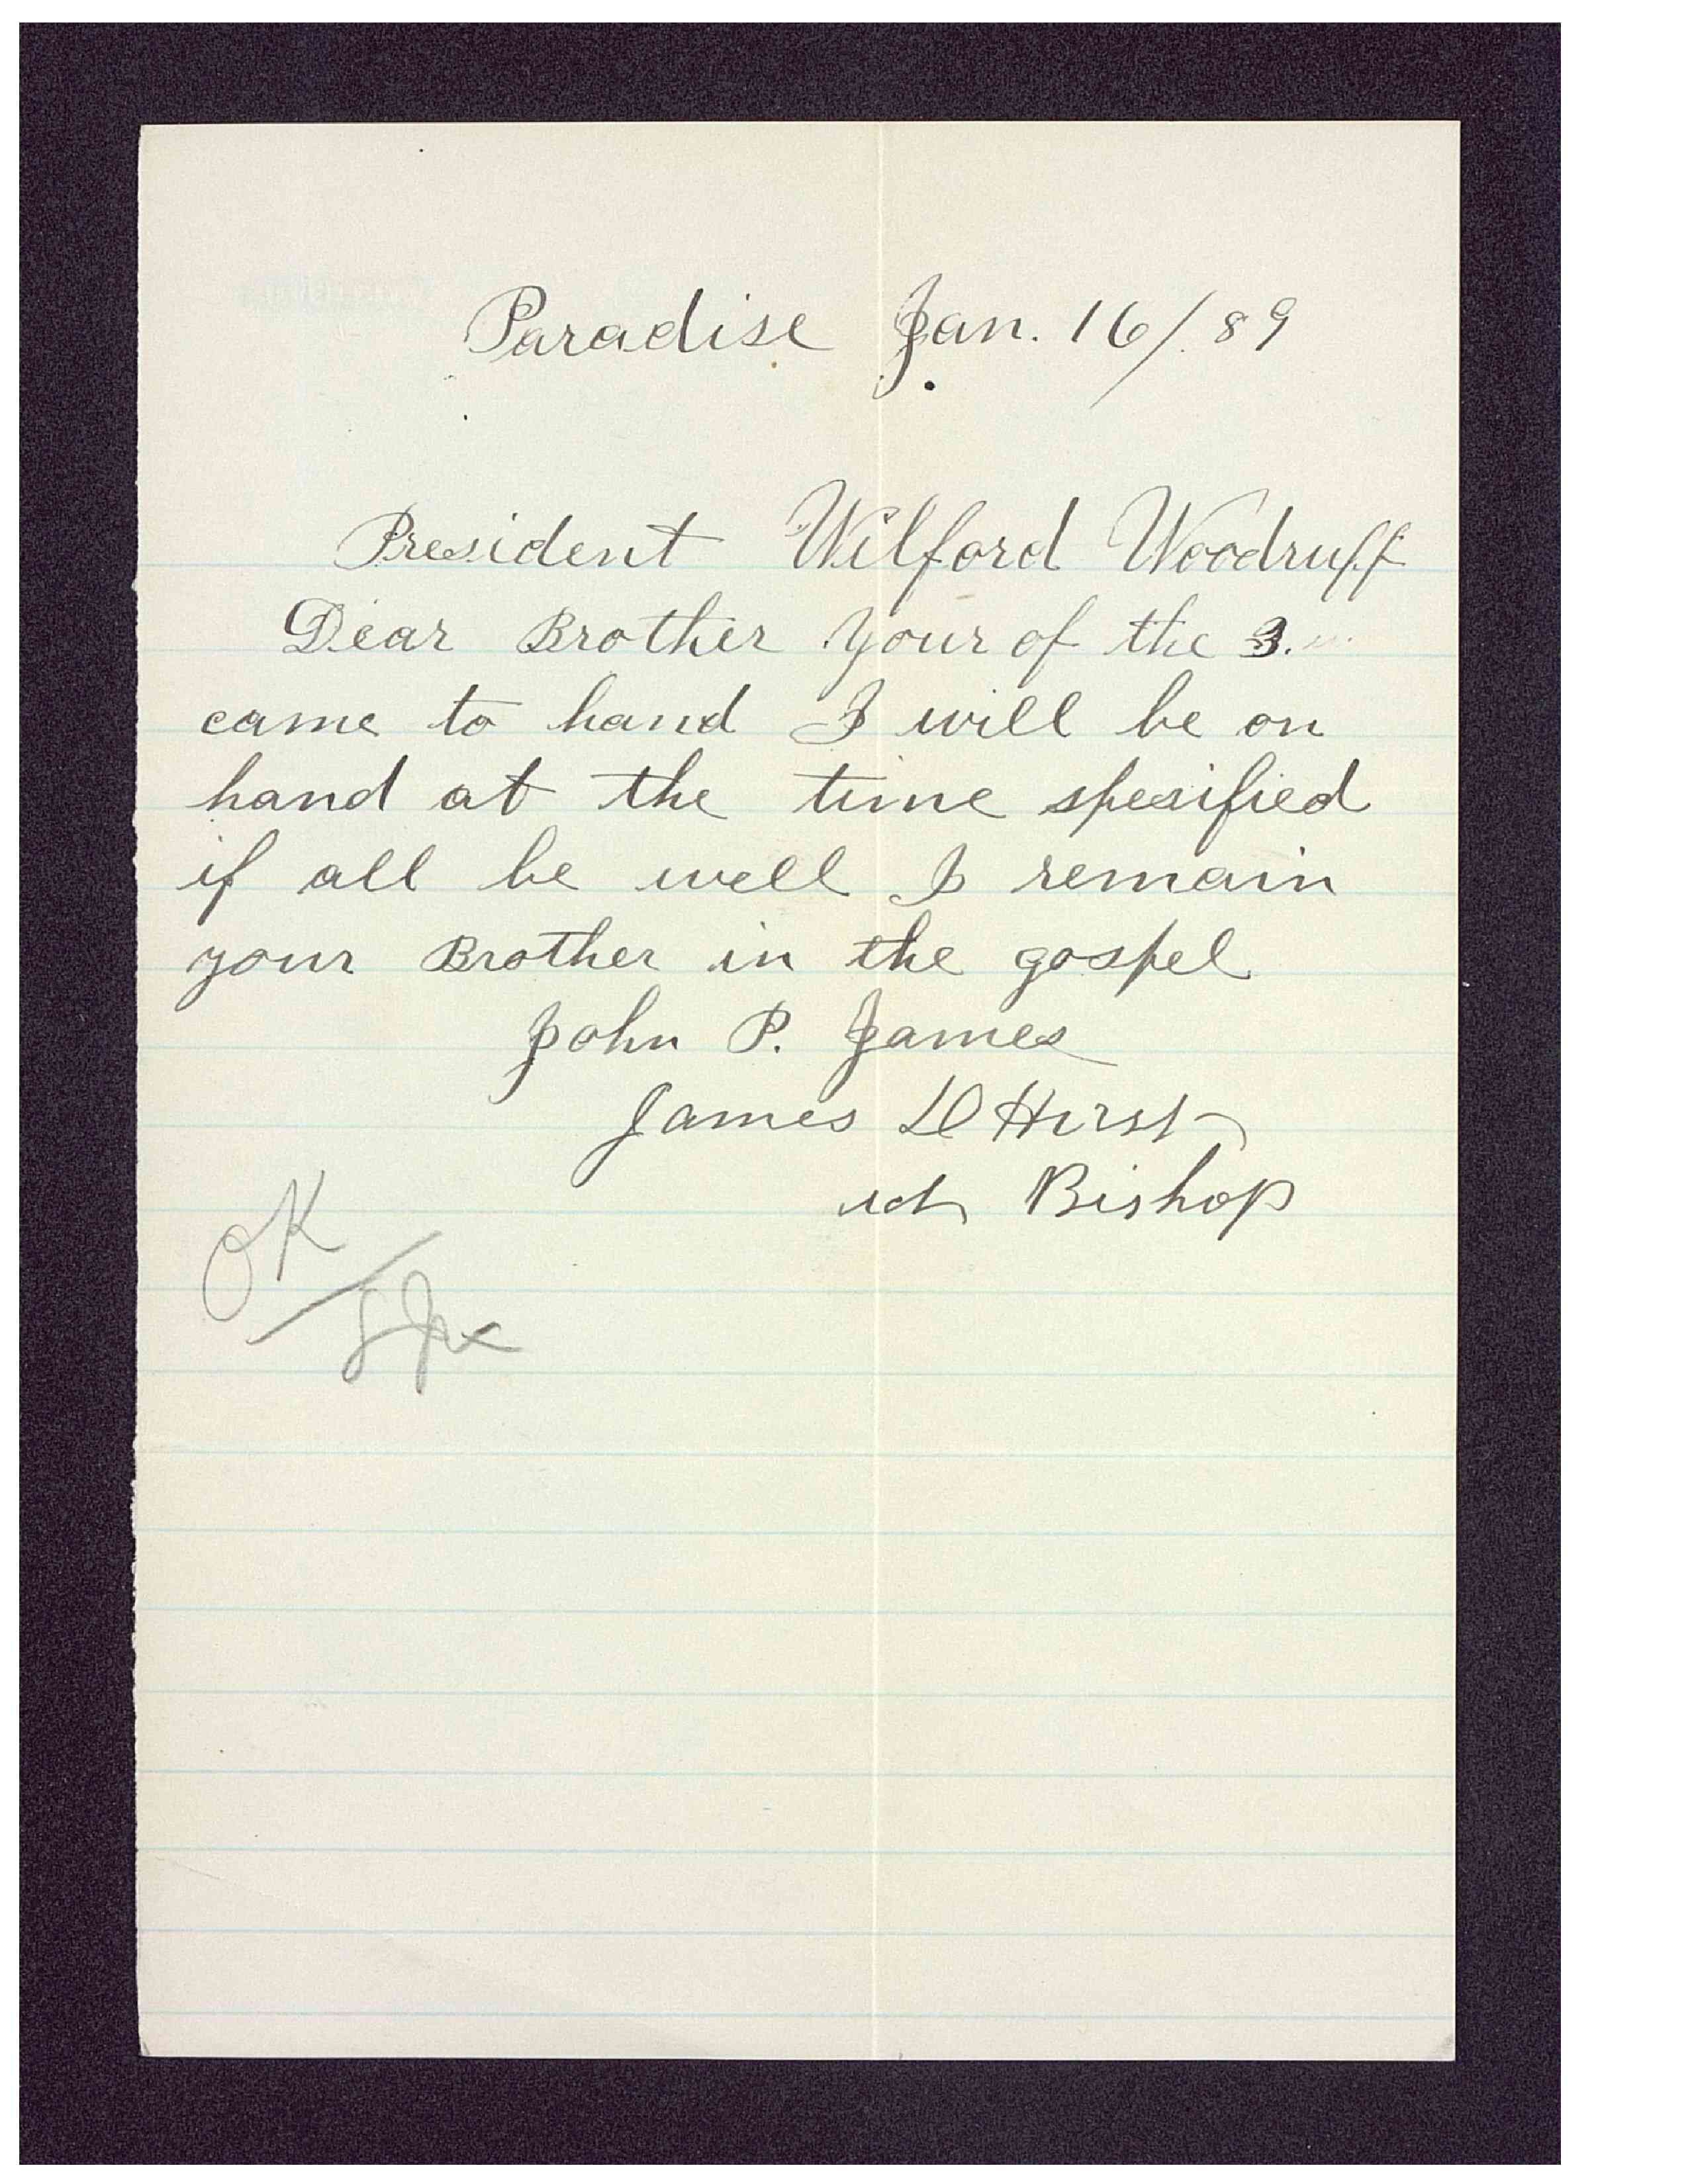 Paradise Jan. 16/89
President Wilford Woodruff
Dear Brother Your of the 3.
came to hand I will be on
hand at the time spesified
if all be well I remain
your Brother in the gospel
John P. James
James D Hirst
act Bishop
OK